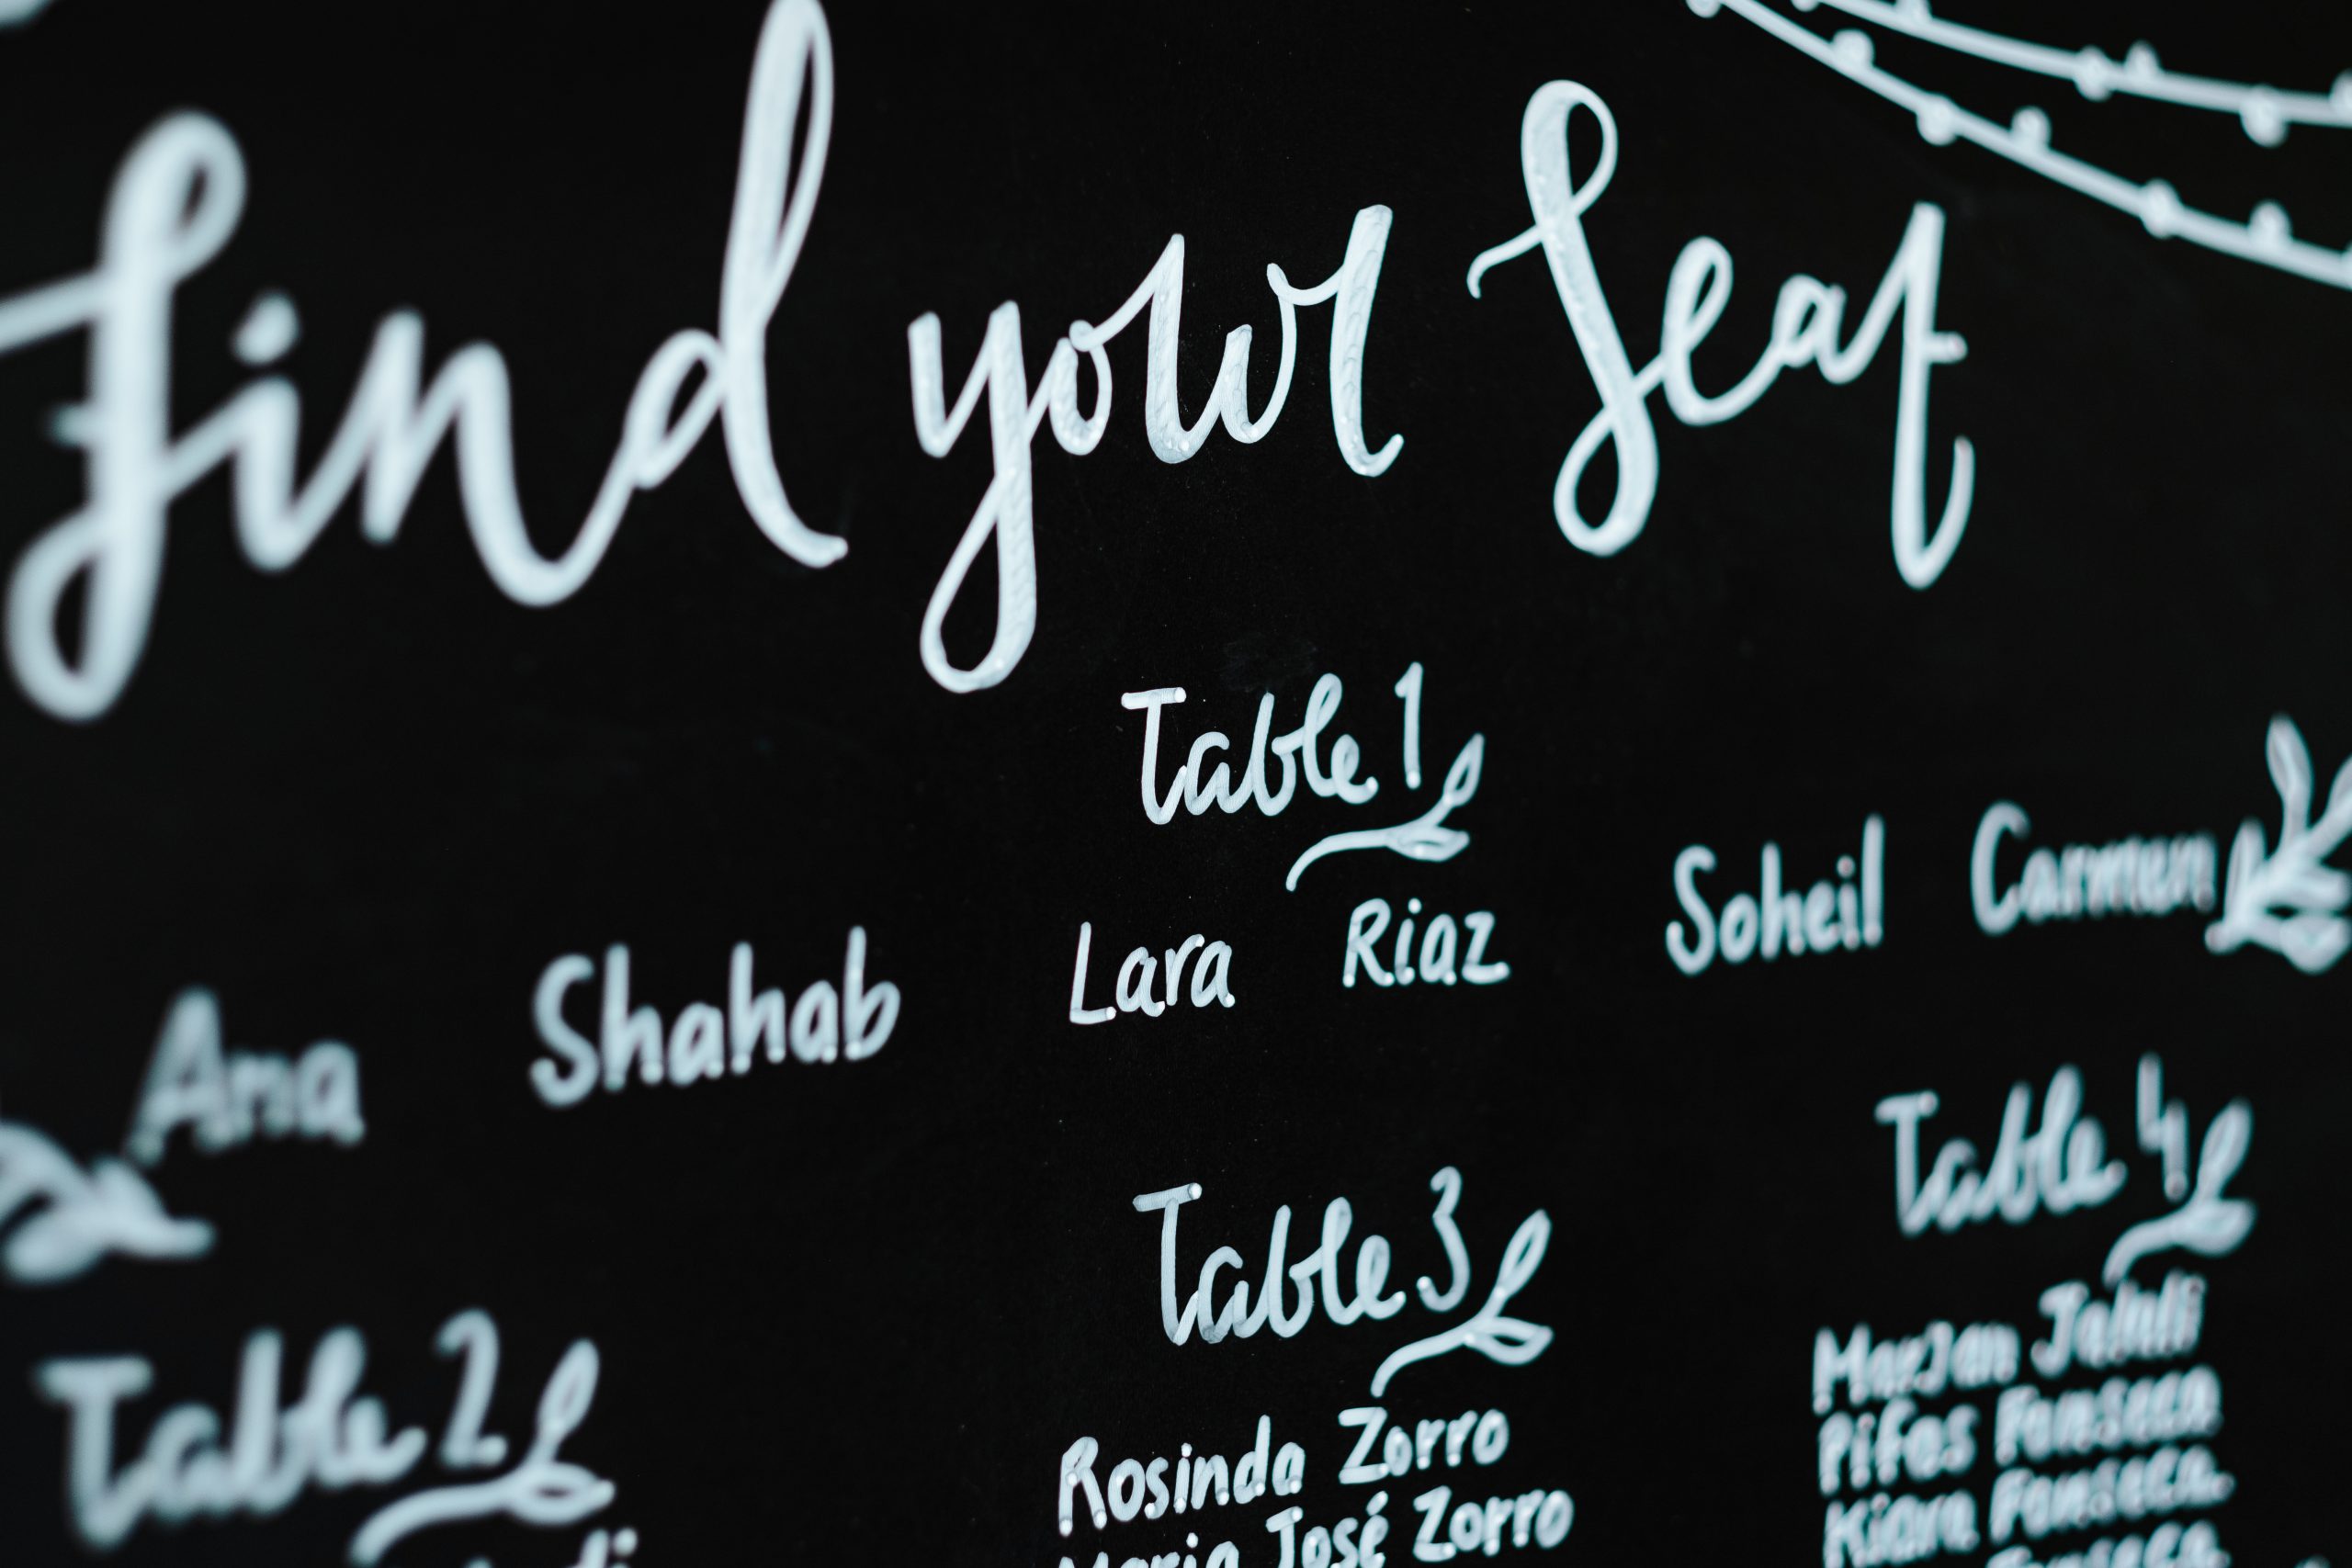 find your Seat
Table 1
Ana Shahab Lara Riaz Soheil Carmen
Table 2
Table 3
Rosinda Zorro
Maria José Zorro
Table 4
Marjan Jalali
Pifas Fonseca
Kiara Fonseca
Fonseca